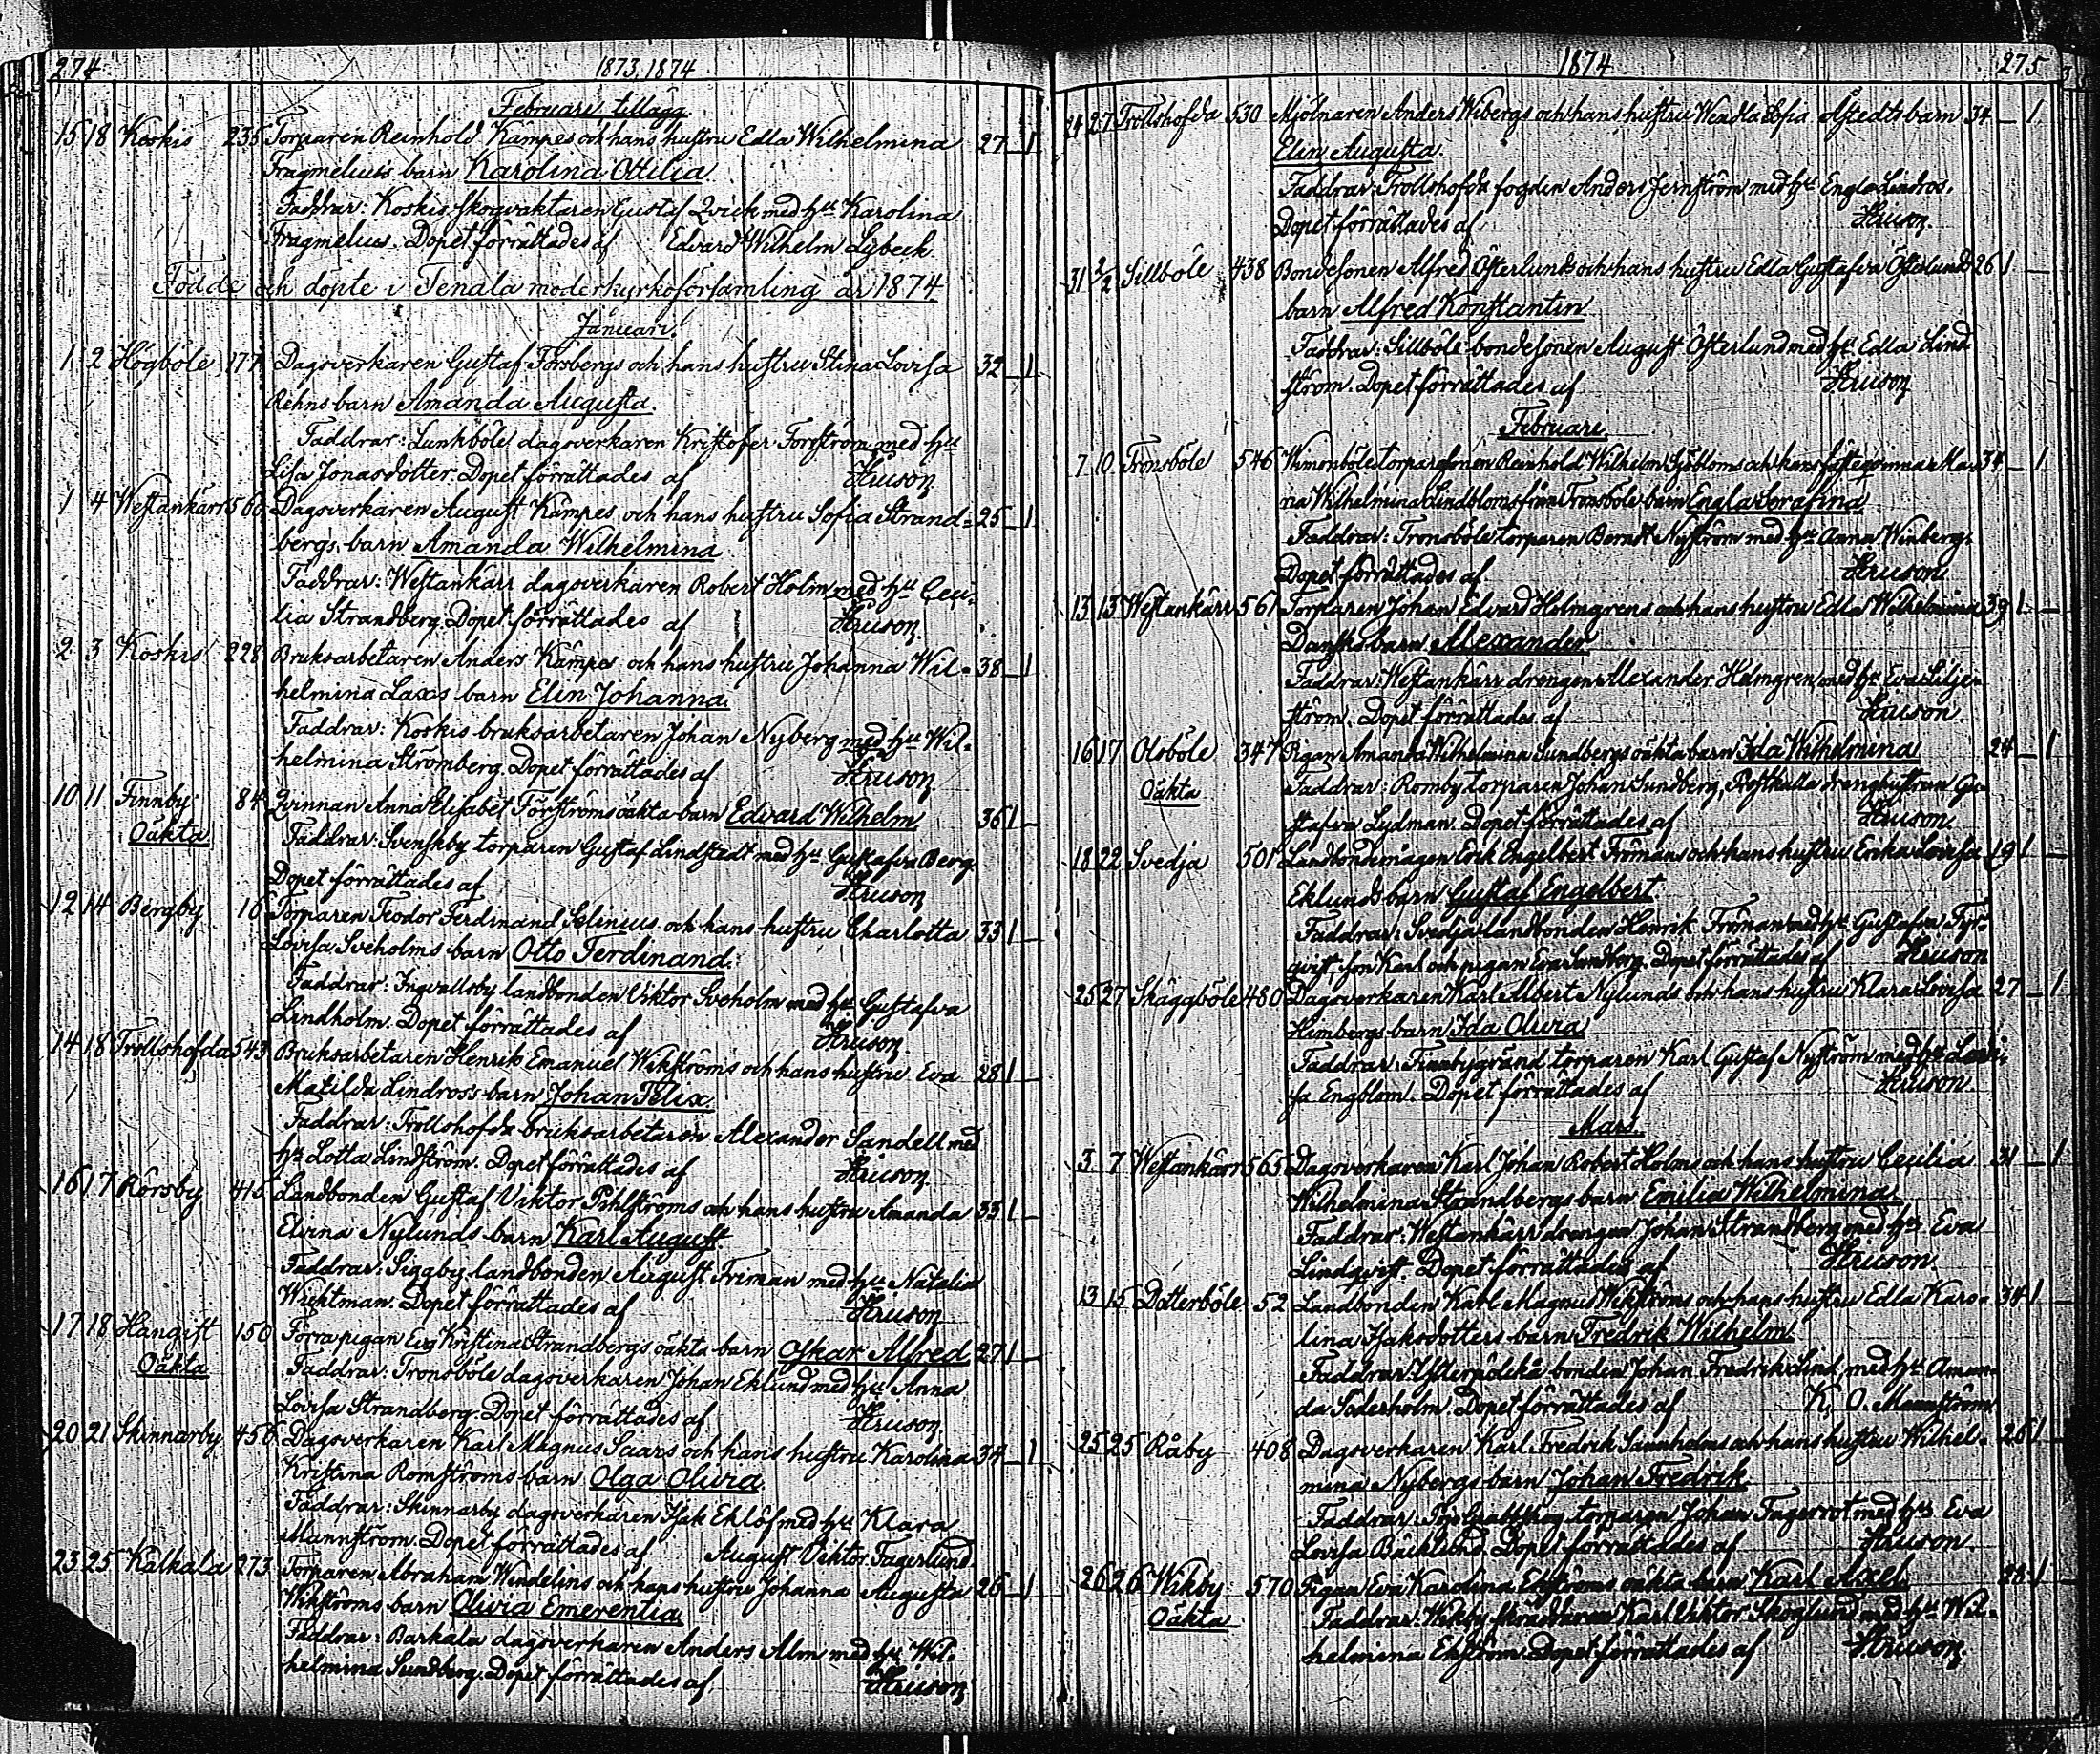 274
1873, 1874
Februari, tillägg
15 18 Koskis 235 Torparen Reinhold Kämpes och hans hustru Edla Wilhelmina 27 – 1
Fragmelius barn Karolina Ottilia
Faddrar: Koskis, skogvaktaren Gustaf Qvick med hu Karolina
Fragmelius. Dopet förrättades af Edvard Wilhelm Lybeck
Födde och döpte i Tenala moderkyrkoförsamling år 1874
Januari.
1 2 Högböle 177 Dagsverkaren Gustaf Forsbergs och hans hustru Stina Lovisa 32 – 1
Rehns barn Amanda Augusta.
Faddrar: Lunkböle dagsverkaren Kristofer Forsström med hu
Lisa Jonasdotter. Dopet förrättades af Heuson
1 4 Westankärr 560 Dagsverkaren August Kämpes och hans hustru Sofia Strand- 25 – 1
bergs barn Amanda Wilhelmina
Faddrar: Westankärr dagsverkaren Robert Holm med hu Ceci-
lia Strandberg. Dopet förrättades af Heuson
2 3 Koskis 228 Bruksarbetaren Anders Kämpes och hans hustru Johanna Wil- 38 – 1
helmina Laxs barn Elin Johanna.
Faddrar: Koskis bruksarbetaren Johan Nyberg med hu Wil-
helmina Strömberg. Dopet förrättades af Heuson
10 11 Finnby 84 Qvinnan Anna Elisabet Forströms oäkta barn Edvard Wilhelm 36 1 –
Oäkta Faddrar: Svenskby torparen Gustaf Lindstedt med hu Gustafva Berg
Dopet förrättades af Heuson
12 14 Bergby 16 Torparen Teodor Ferdinand Selinius och hans hustru Charlotta 33 1 –
Lovisa Sveholms barn Otto Ferdinand.
Faddrar: Ingvallsby landbonden Viktor Sveholm med hu Gustafva
Lindholm. Dopet förrättades af Heuson
14 18 Trollshofda 543 Bruksarbetaren Henrik Emanuel Wikströms och hans hustru Eva 28 1 –
Matilda Lindross barn Johan Felix.
Faddrar: Trollshofda bruksarbetaren Alexander Sandell med
hu Lotta Lindström. Dopet förrättades af Heuson
16 17 Rörsby 415 Landbonden Gustaf Viktor Pihlströms och hans hustru Amanda 33 1 –
Elvina Nylunds barn Karl August.
Faddrar: Siggby landbonden August Friman med hu Natalia
Wichtman. Dopet förrättades af Heuson
17 18 Hangist 150 Förra pigan Eva Kristina Strandbergs oäkta barn Oskar Alfred 27 1 –
Oäkta Faddrar: Tronsböle dagsverkaren Johan Eklund med hu Anna
Lovisa Strandberg. Dopet förrättades af Heuson
20 21 Skinnarby 456 Dagsverkaren Karl Magnus Saars och hans hustru Karolina 34 – 1
Kristina Romströms barn Olga Olivia
Faddrar: Skinnarby dagsverkaren Isak Eklöf med hu Klara
Mannström. Dopet förrättades af August Viktor Fagerlund.
23 25 Kalkala 273 Torparen Abraham Wendelins och hans hustru Johanna Augusta 26 – 1
Wikströms barn Olivia Emerentia
Faddrar: Barkala dagsverkaren Anders Alm med hu Wil-
helmina Sundberg. Dopet förrättades af Heuson
1874
275
24 27 Trollshofda 530 Mjölnaren Anders Wibergs och hans hustru Wendla Sofia Åstedts barn 34 – 1
Elin Augusta.
Faddrar: Trollshofda fogden Anders Jernström med hu Engla Lindros.
Dopet förrättades af Heuson.
31 2/2 Sillböle 438 Bondesonen Alfred Österlunds och hans hustru Edla Gustafva Österlunds 26 1 –
barn Alfred Konstantin
Faddrar: Sillböle bondesonen August Österlund med hu Edla Lind-
ström. Dopet förrättades af Heuson
Februari.
7 10 Tronsböle 546 torparesonen Reinhold Wilhelm Sjöbloms och hans fästeqvinna Ma- 34 – 1
ria Wilhelmina Lindbloms från Tronsböle barn Engla Serafina
Faddrar: Tronsböle torparen Berndt Nyström med hu Anna Winberg.
Dopet förrättades af Heuson
13 15 Westankärr 561 Torparen Johan Edvard Holmgrens och hans hustru Edla Wilhelmina 39 1 –
Dansks barn Alexander.
Faddrar: Westankärr drengen Alexander Holmgren med hu Eva Lilje-
ström. Dopet förrättades af Heuson.
16 17 Olsböle 347 Pigan Amanda Wilhelmina Sundbergs oäkta barn Ida Wilhelmina 24 – 1
Oäkta Faddrar: Romby torparen Johan Sundberg, drenghustrun Gu-
stafva Lydman. Dopet förrättades af Heuson.
18 22 Svedja 501 Landbondemågen Erik Engelbert Frömans och hans hustru Erika Lovisa 19 1 –
Eklunds barn Gustaf Engelbert
Faddrar: Svedja landbonden Henrik Fröman med hu Gustafva
son Karl och pigan Eva Sundberg. Dopet förrättades af Heuson
25 27 Skäggböle 480 Dagsverkaren Karl Albert Nylunds och hans hustru Klara Lovisa 27 – 1
Himbergs barn Ida Olivia
Faddrar: Finnbygränd torparen Karl Gustaf Nyström med hu Lovi-
sa Engblom. Dopet förrättades af Heuson.
Mars.
3 7 Westankärr 565 Dagsverkaren Karl Johan Robert Holms och hans hustru Cecilia 31 – 1
Wilhelmina Strandbergs barn Emilia Wilhelmina.
Faddrar: Westankärr drengen Johan Strandberg med hu Eva
Lindqvist. Dopet förrättades af Heuson.
13 15 Dotterböle 52 Landbonden Karl Magnus Wikströms och hans hustru Edla Karo- 34 1
lina Isaksdotters barn Fredrik Wilhelm.
Faddrar: bonden Johan Fredrik Lind, med hu Aman-
da Söderholm. Dopet förrättades af K. O. Mannström
25 25 Råby 408 Dagsverkaren Karl Fredrik Sannholms och hans hustru Wilhel- 26 1
mina Nybergs barn Johan Fredrik.
Faddrar: torparen Johan Fagerrot med hu Eva
Lovisa Bäcklund. Dopet förrättades af Heuson
26 26 Wikby 570 Pigan Eva Karolina Ekströms oäkta barn Karl Axel 28 1
Oäkta Faddrar: Wikby skräddaren Karl Viktor Skoglund med hu Wil-
helmina Ekström. Dopet förrättades af Heuson.